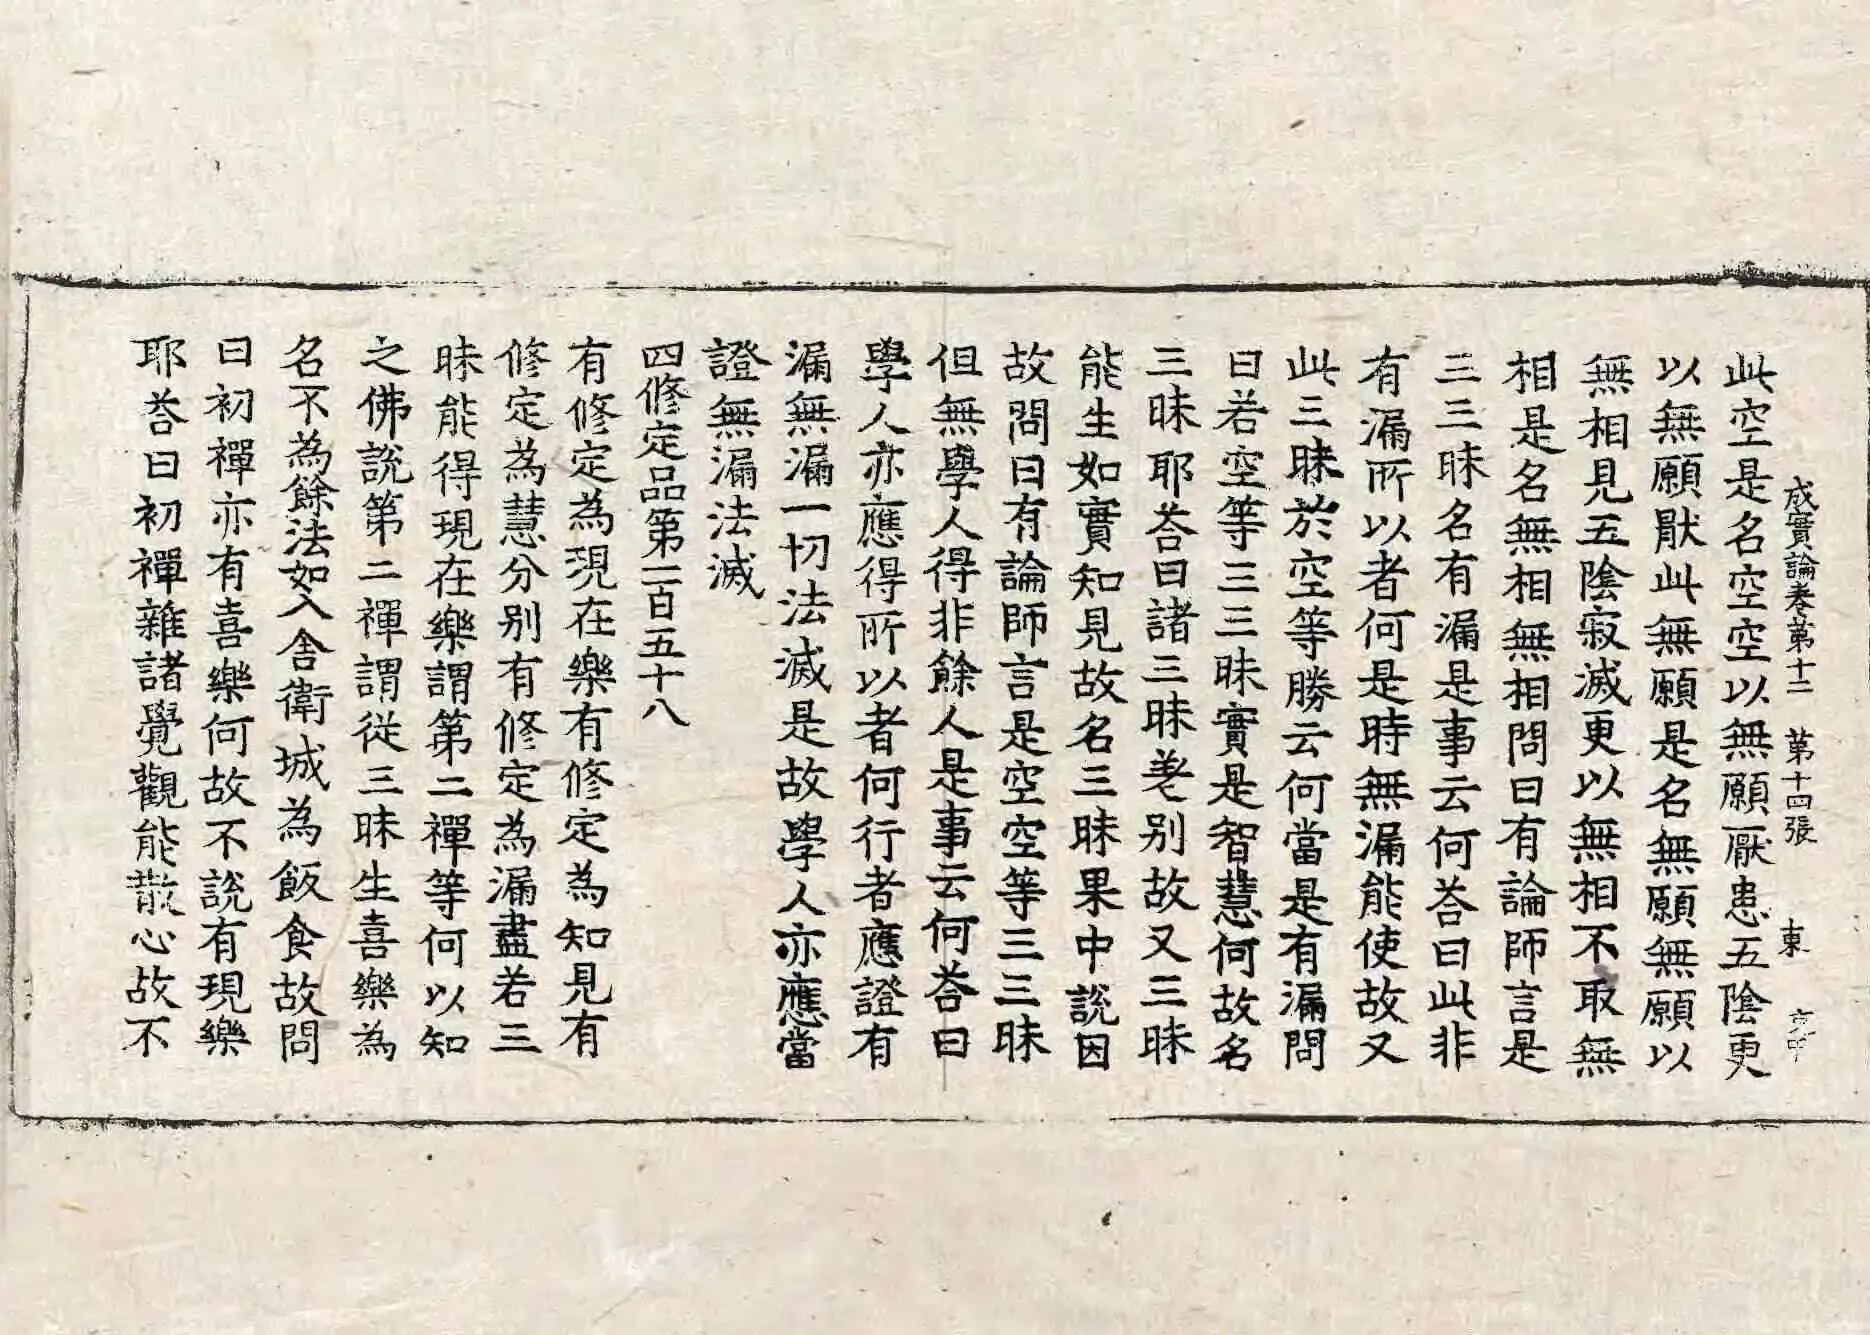 成實論卷第十二 第十四張 東
此空是名空空以無願厭患五陰更
以無願猒此無願是名無願無願以
無相見五陰寂滅更以無相不取無
相是名無相無相問曰有論師言是
三三昧名有漏是事云何荅曰此非
有漏所以者何是時無漏能使故又
此三昧於空等勝云何當是有漏問
曰若空等三三昧實是智慧何故名
三昧耶荅曰諸三昧差别故又三昧
能生如實知見故名三昧果中說因
故問曰有論師言是空空等三三昧
但無學人得非餘人是事云何荅曰
學人亦應得所以者何行者應證有
漏無漏一切法滅是故學人亦應當
證無漏法滅
四修定品第一百五十八
有修定為現在樂有修定為知見有
修定為慧分别有修定為漏盡若三
昧能得現在樂謂第二禪等何以知
之佛說第二禪謂從三昧生喜樂為
名不為餘法如入舍衛城為飯食故問
曰初禪亦有喜樂何故不說有現樂
耶荅曰初禪雜諸覺觀能散心故不